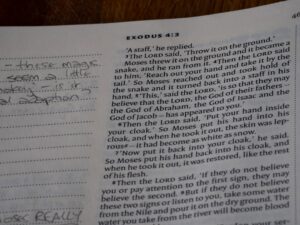 EXODUS 4:3
'A staff,' he replied.
3The LORD said, 'Throw it on the ground.'
Moses threw it on the ground and it became a
snake, and he ran from it. 4Then the LORD said
to him, 'Reach out your hand and take it by the
tail.' So Moses reached out and took hold of
the snake and it turned back into a staff in his
hand. 5'This,' said the LORD, 'is so that they may
believe that the LORD, the God of their fathers –
the God of Abraham, the God of Isaac and the
God of Jacob – has appeared to you.'
6Then the LORD said, 'Put your hand inside
your cloak.' So Moses put his hand into his
cloak, and when he took it out, the skin was lep-
rous – it had become as white as snow.
7'Now put it back into your cloak,' he said.
So Moses put his hand back into his cloak, and
when he took it out, it was restored, like the rest
of his flesh.
8Then the LORD said, 'If they do not believe
you or pay attention to the first sign, they may
believe the second. 9But if they do not believe
these two signs or listen to you, take some water
from the Nile and pour it on the dry ground. The
water you take from the river will become blood
– these
seem a little
– is it
adoption
REALLY